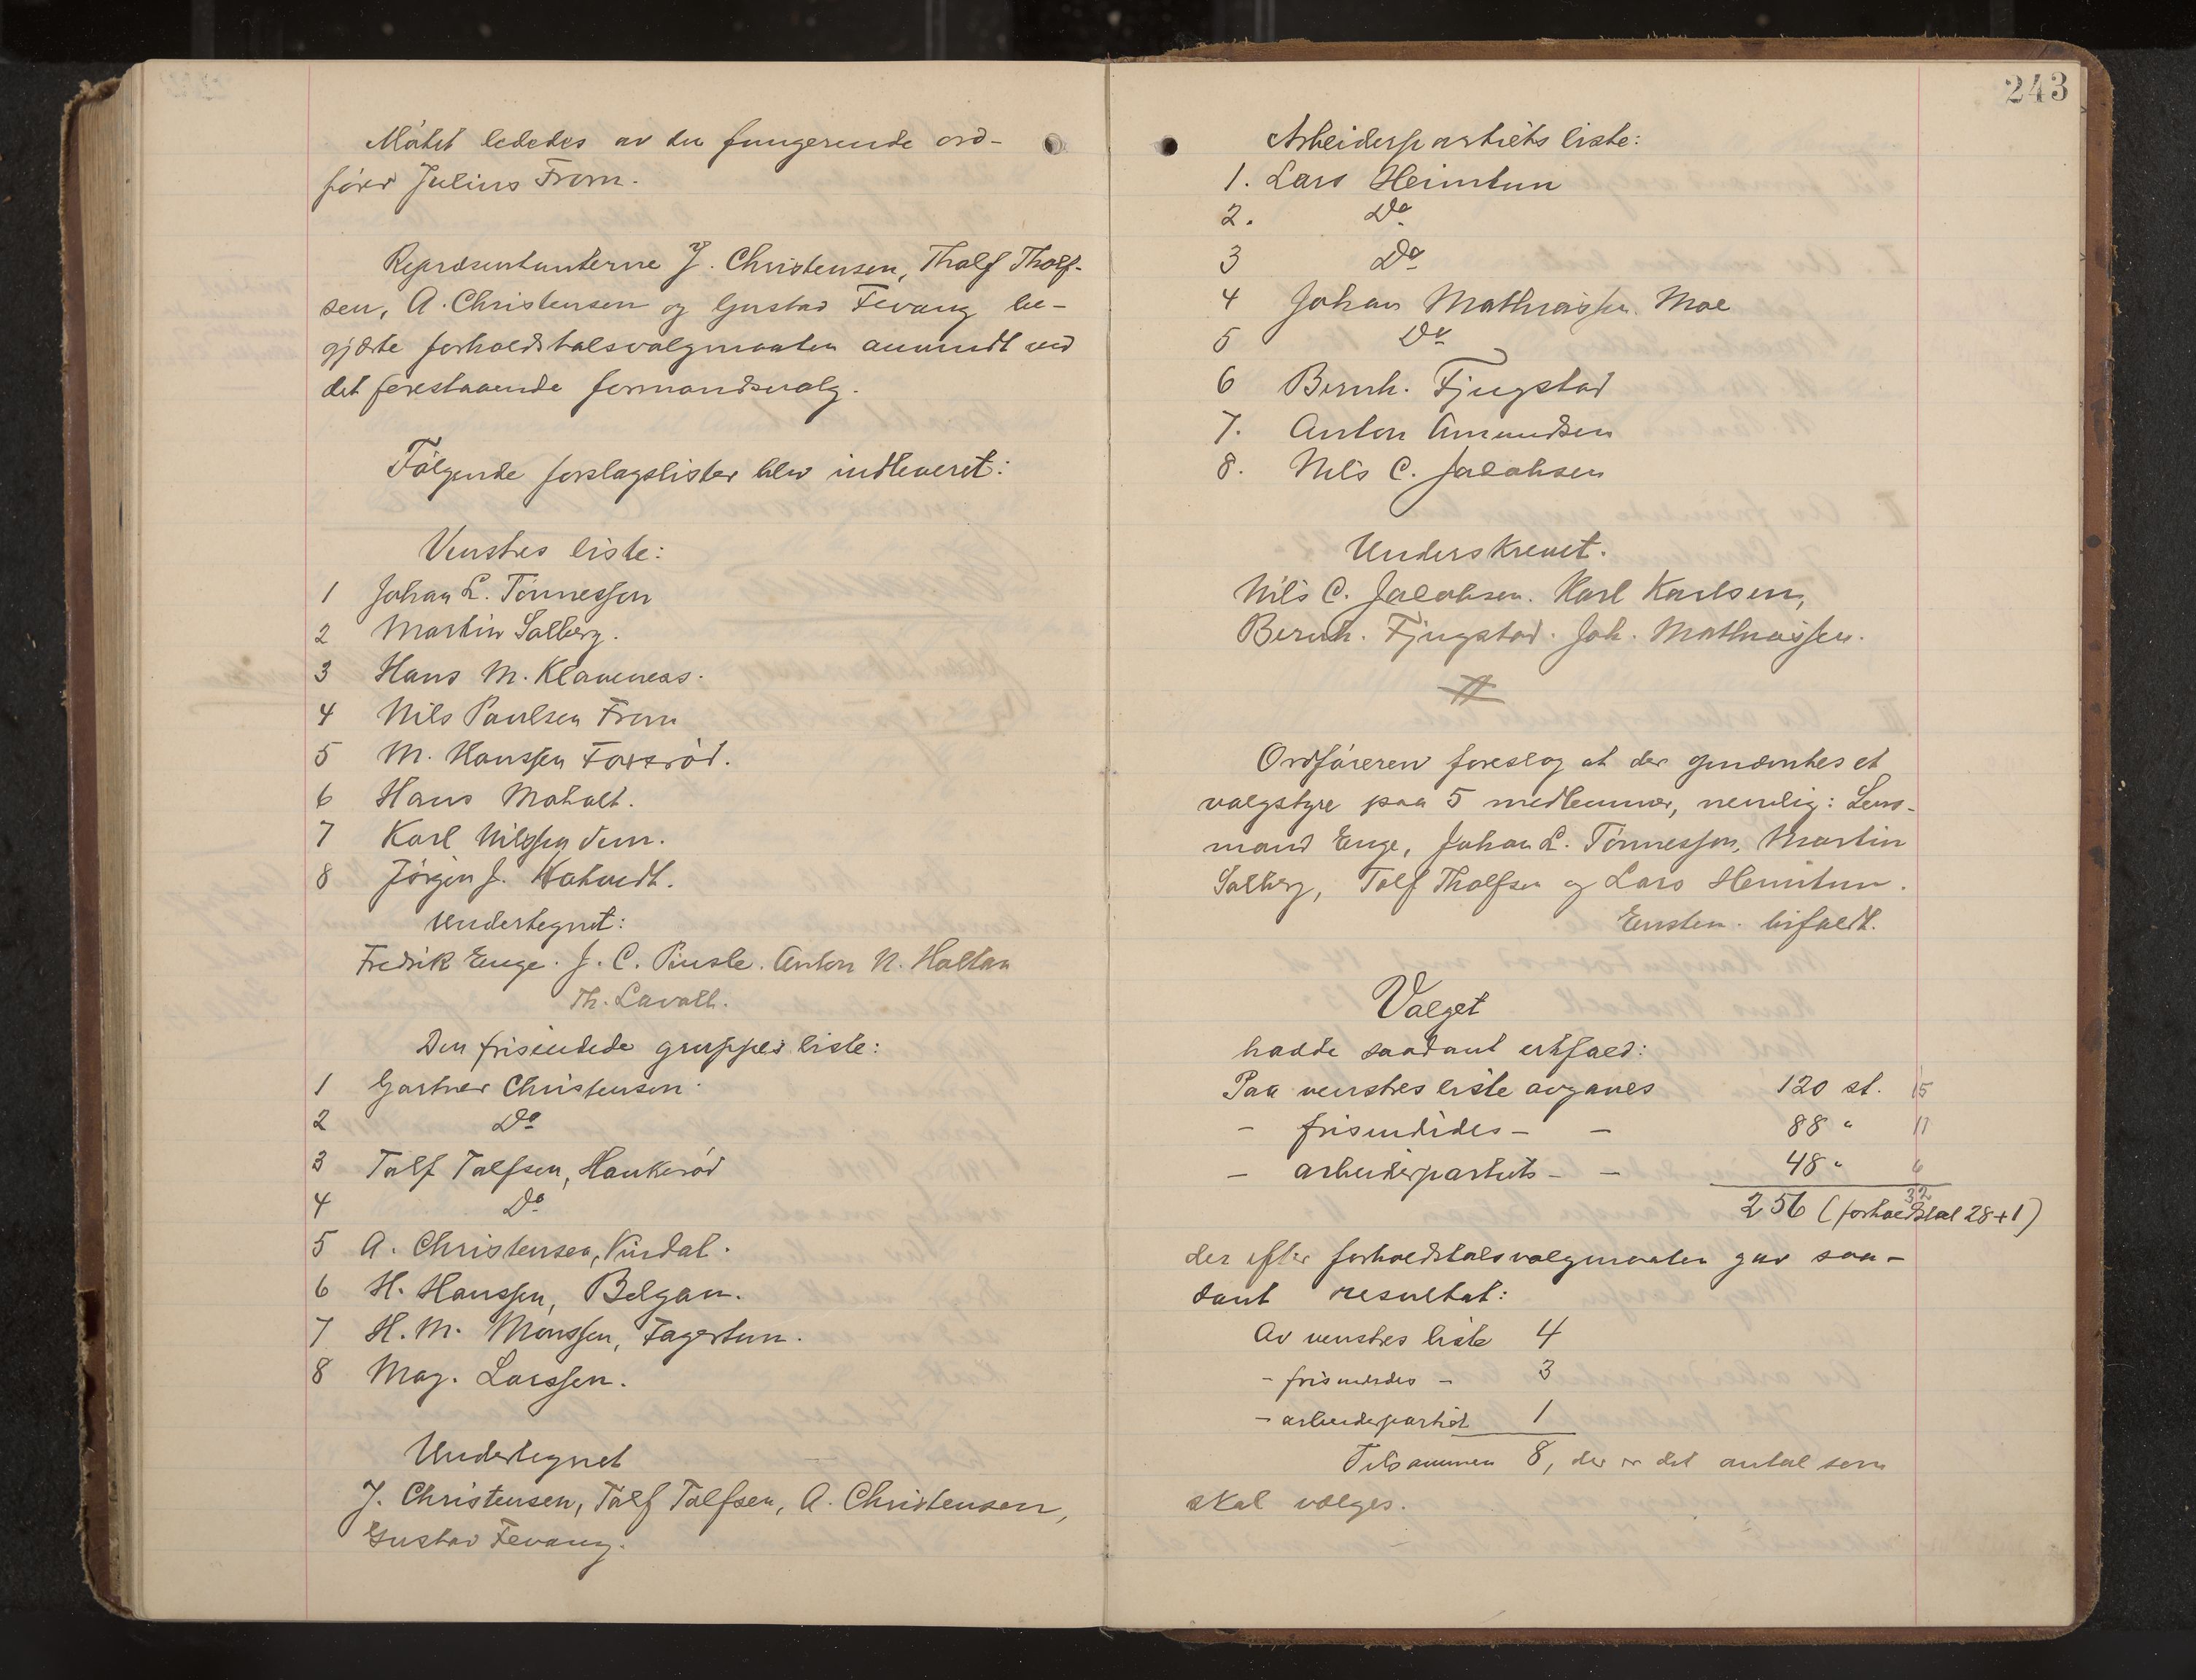 Mötet lededes av den fungerende ord-
förer Julius From.
Repræsentanterne J. Christensen, Tholf Tholf-
sen, A. Christensen og Gustav Fevang be-
gjærte forholdstalsvalgmaaten anvendt ved
det forestaaende formandsvalg.
Fölgende forslagslister blev indleveret:
Venstres liste:
1 Johan L. Tönnessen
2 Martin Solberg.
3 Hans M. Klaveness.
4 Nils Paulsen From
5 M. Hanssen Foxeröd.
6 Hans Moholt.
7 Karl Nilssen Vem.
8 Jörgen J.
Undertegnet:
Fredrik Enge. J. C. Anton N. Haltan
Th. Lavoll.
Den frisindede gruppes liste:
1 Gartner Christensen.
2 Do
3 Tolf Tolfsen, Haukeröd
4 Do
5 A. Christensen, Virdal.
6 H. Hanssen, Belgau.
7 H. M. Monssen, Fagertun.
8 Mag. Larssen.
Undertegnet
J. Christensen, Tolf Tolfsen, A. Christensen,
Gustav Fevang.
243
Arbeiderpartiets liste:
1. Lars Heimtun
2. Do
3 Do
4 Johan Mathiassen. Moe
5 Do
6 Bernh. Fjugstad
7. Anton Amundsen
8. Nils C. Jacobsen
Underskrevet.
Nils C. Jacobsen. Karl Karlsen,
Bernh. Fjugstad. Joh. Mathiassen.
Ordföreren foreslog at der opnævntes et
valgstyre paa 5 medlemmer, nemlig: Lens-
mand Enge, Johan L. Tönnessen, Martin
Solberg, Tolf Tholfsen og Lars Heimtun.
Enstem. bifaldt.
Valget
hadde saadant utfald:
Paa venstres liste avgaves 120 st. 15
- frisindedes - - 88 " 11
- arbeiderpartiets - - 48 " 6
32
256 (forholdstal 28+1)
der efter forholdstalsvalgmaaten gav saa-
dant resultat:
Av venstres liste 4
- frisindedes - 3
- arbeiderpartiet 1
Tilsammen 8, der er det antal som
skal vælges.